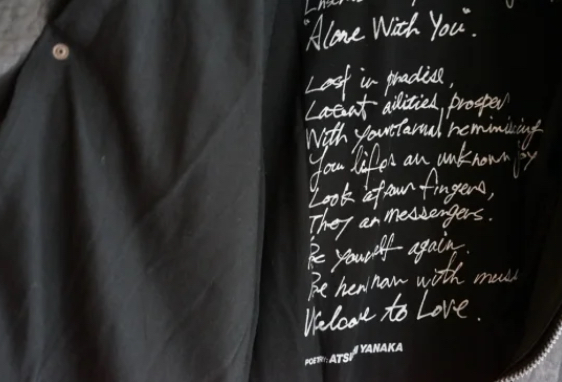 "Alone With You".
Lost in pradise,
Latent ailities prosper
With your
You life's an unknown joy
Look at your fingers,
They are messengers.
Be yourself again.
Be with
Welcome to Love.
POETRY: ATSU YANAKA